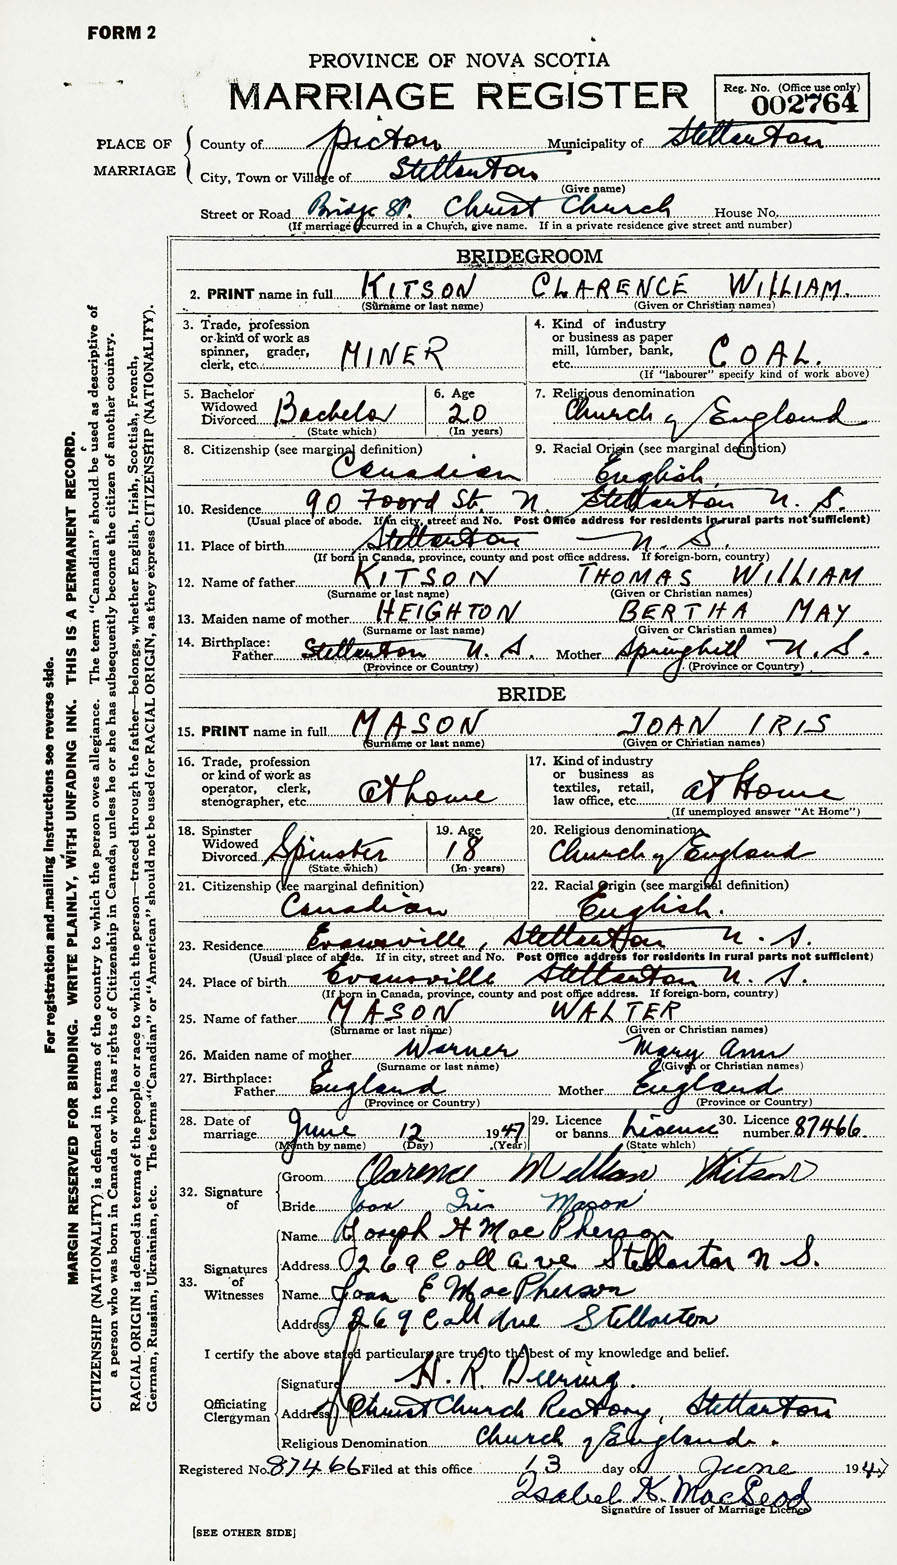 FORM 2
PROVINCE OF NOVA SCOTIA
MARRIAGE REGISTER
Reg. No. (Office use only)
002764
PLACE OF MARRIAGE
County of Pictou Municipality of Stellarton
City, Town or Village of Stellarton
(Give name)
Street or Road Bridge St. Christ Church House No.
(If marriage occurred in a Church, give name. If in a private residence give street and number)
BRIDEGROOM
2. PRINT name in full KITSON CLARENCE WILLIAM.
(Surname or last name) (Given or Christian names)
3. Trade, profession or kind of work as spinner, grader, clerk, etc. MINER
4. Kind of industry or business as paper mill, lumber, bank, etc. COAL.
(If "labourer" specify kind of work above)
5. Bachelor Widowed Divorced Bachelor
(State which)
6. Age 20
(In years)
7. Religious denomination
Church of England
8. Citizenship (see marginal definition)
Canadian
9. Racial Origin (see marginal definition)
English
10. Residence 90 Foord St. N. Stellarton N. S.
(Usual place of abode. If in city, street and No. Post Office address for residents in rural parts not sufficient)
11. Place of birth Stellarton N. S.
(If born in Canada, province, county and post office address. If foreign-born, country)
12. Name of father KITSON THOMAS WILLIAM
(Surname or last name) (Given or Christian names)
13. Maiden name of mother HEIGHTON BERTHA MAY
(Surname or last name) (Given or Christian names)
14. Birthplace: Father Stellarton N. S. Mother Springhill N. S.
(Province or Country) (Province or Country)
BRIDE
15. PRINT name in full MASON JOAN IRIS
(Surname or last name) (Given or Christian names)
16. Trade, profession or kind of work as operator, clerk, stenographer, etc. at home
17. Kind of industry or business as textiles, retail, law office, etc. at Home
(If unemployed answer "At Home")
18. Spinster Widowed Divorced Spinster
(State which)
19. Age 18
(In years)
20. Religious denomination
Church of England
21. Citizenship (see marginal definition)
Canadian
22. Racial Origin (see marginal definition)
English.
23. Residence Evansville, Stellarton N. S.
(Usual place of abode. If in city, street and No. Post Office address for residents in rural parts not sufficient)
24. Place of birth Evansville Stellarton N. S.
(If born in Canada, province, county and post office address. If foreign-born, country)
25. Name of father MASON WALTER
(Surname or last name) (Given or Christian names)
26. Maiden name of mother Warner Mary Ann
(Surname or last name) (Given or Christian names)
27. Birthplace: Father England Mother England
(Province or Country) (Province or Country)
28. Date of marriage June 12 1947
(Month by name) (Day) (Year)
29. Licence or banns Licence
(State which)
30. Licence number 87466
32. Signature of
Groom Clarence William Kitson
Bride Joan Iris Mason
33. Signatures of Witnesses
Name Joseph A MacPherson
Address 269 Call Ave Stellarton N S.
Name Joan E MacPherson
Address 269 Call Ave Stellarton
I certify the above stated particulars are true to the best of my knowledge and belief.
Officiating Clergyman
Signature H. R. Deering.
Address Christ Church Rectory, Stellarton
Religious Denomination Church of England.
Registered No. 87466 Filed at this office 13 day of June 1947
Isabel K. MacLeod
Signature of Issuer of Marriage Licence
[SEE OTHER SIDE]
For registration and mailing instructions see reverse side.
MARGIN RESERVED FOR BINDING. WRITE PLAINLY, WITH UNFADING INK. THIS IS A PERMANENT RECORD.
CITIZENSHIP (NATIONALITY) is defined in terms of the country to which the person owes allegiance. The term "Canadian" should be used as descriptive of
a person who was born in Canada or who has rights of Citizenship in Canada, unless he or she has subsequently become the citizen of another country.
RACIAL ORIGIN is defined in terms of the people or race to which the person—traced through the father—belongs, whether English, Irish, Scottish, French,
German, Russian, Ukrainian, etc. The terms "Canadian" or "American" should not be used for RACIAL ORIGIN, as they express CITIZENSHIP (NATIONALITY).